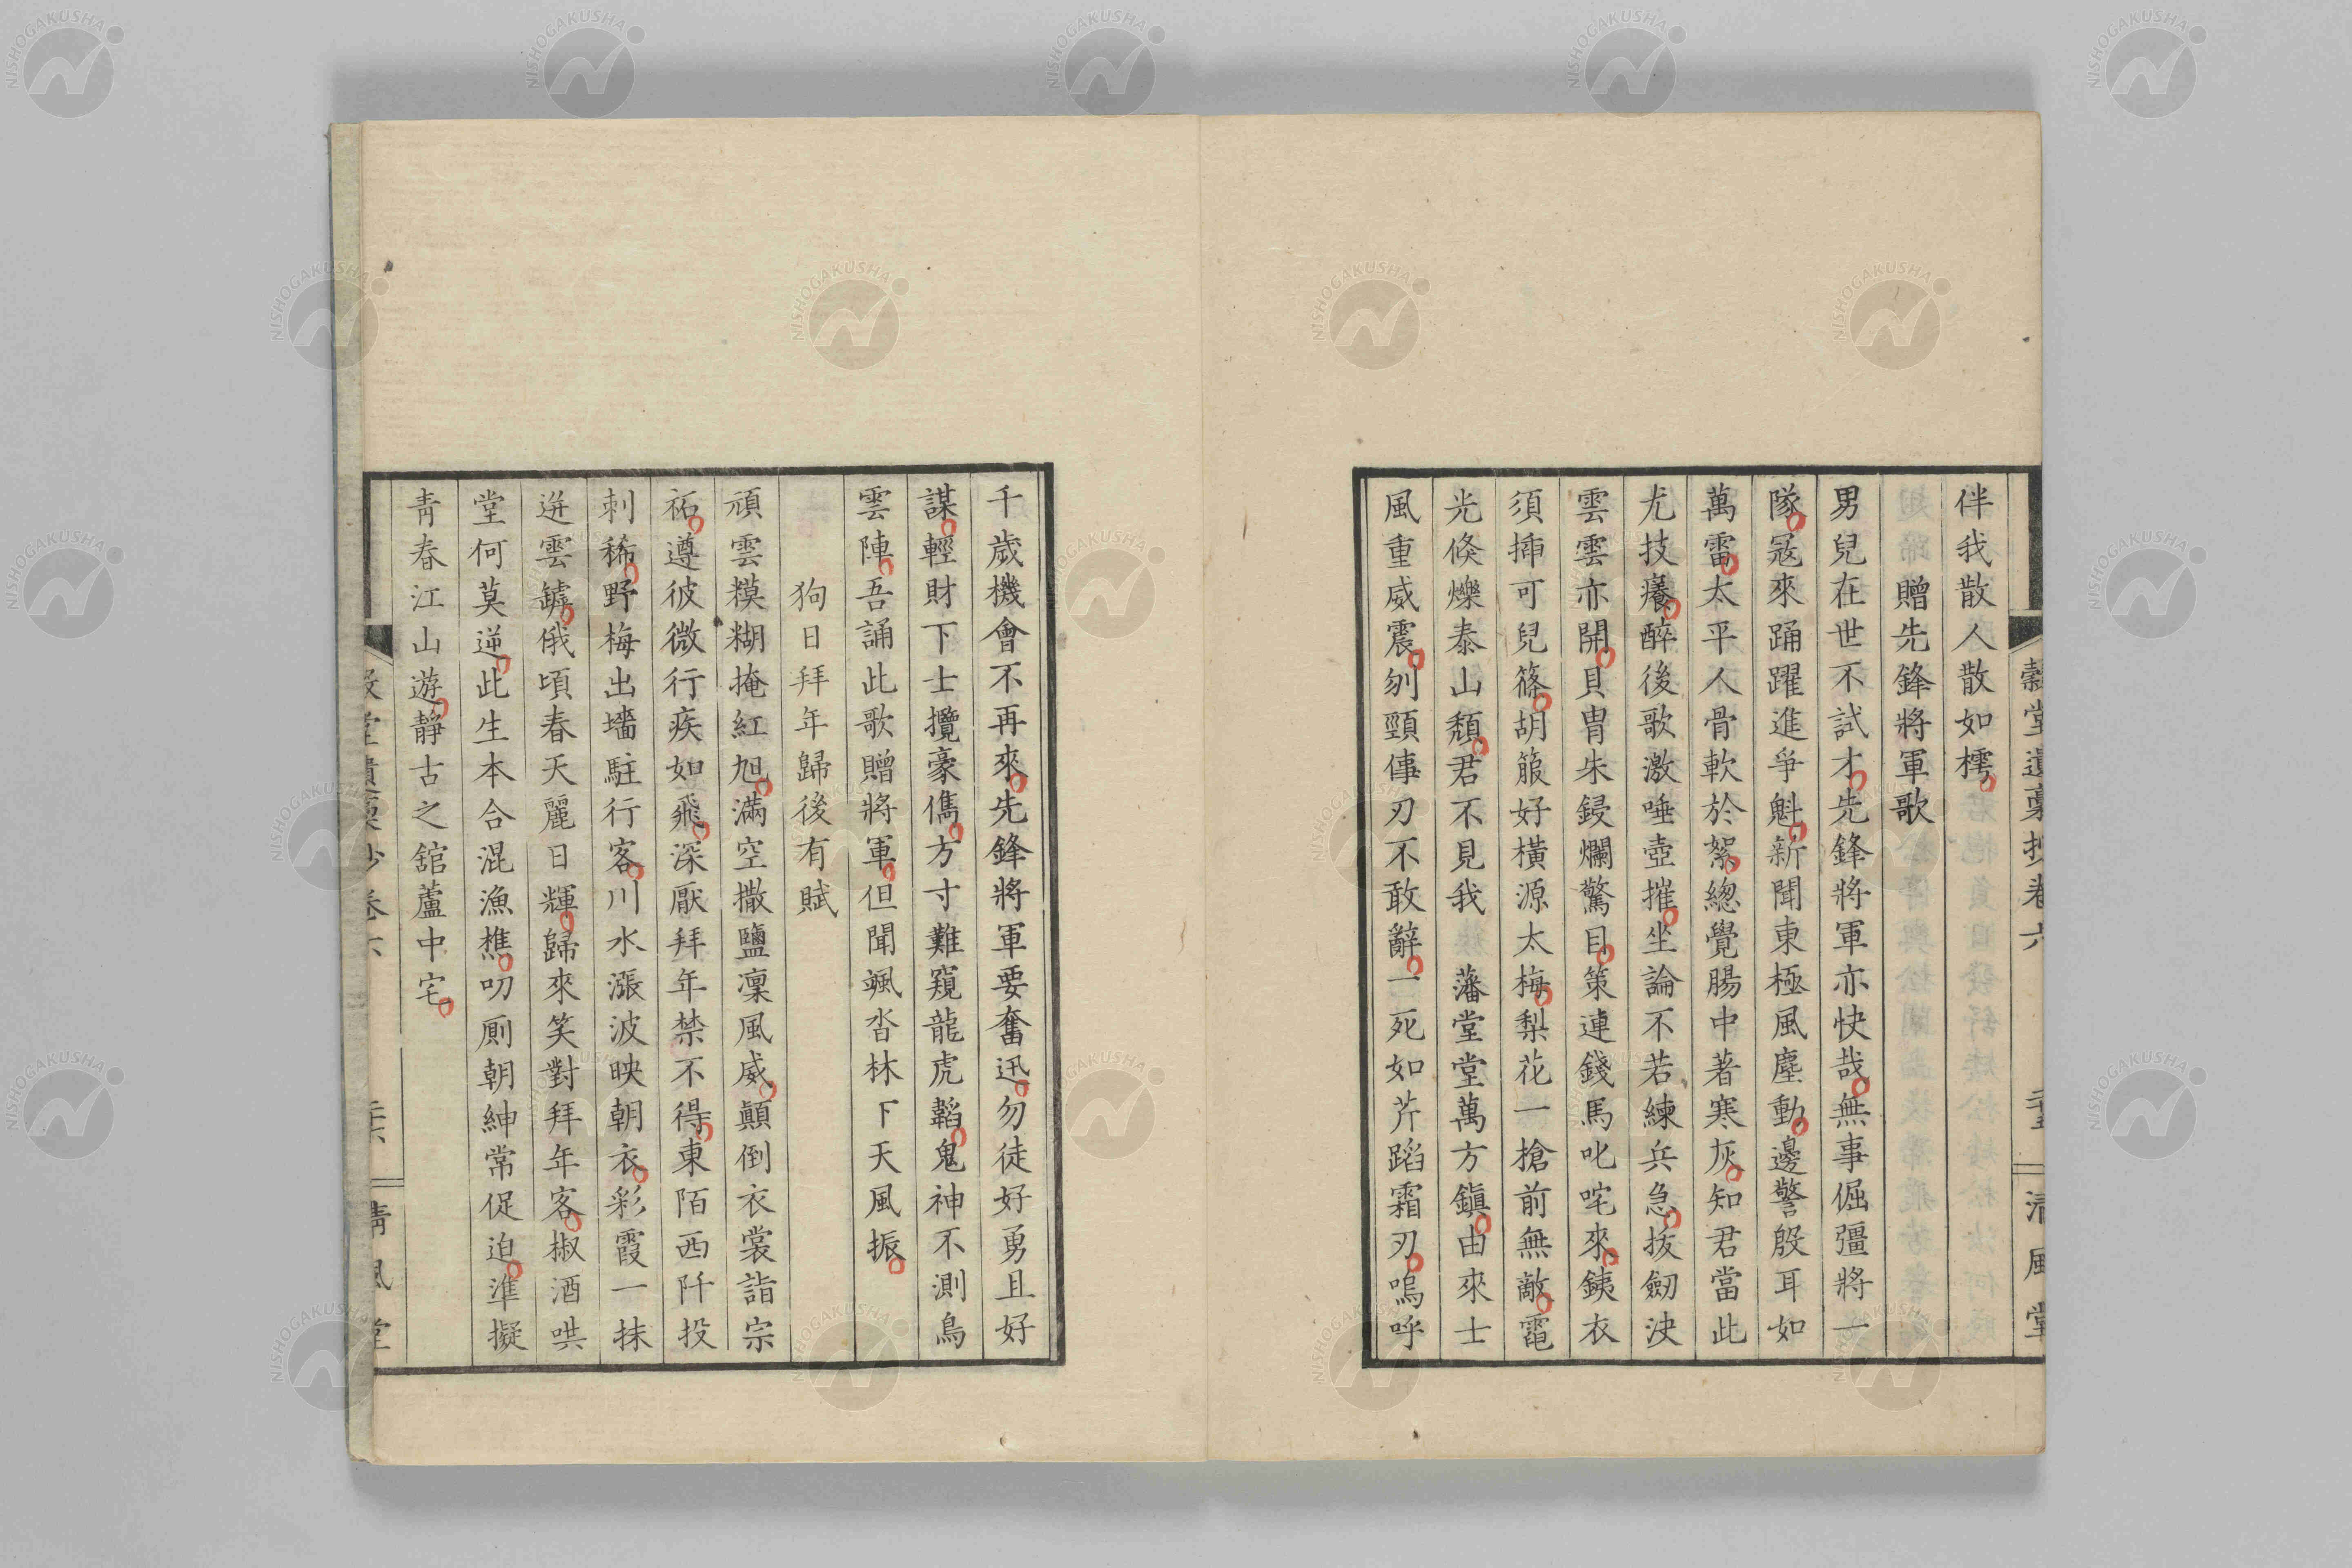 伴我散人散如樗
贈先鋒將軍歌
男兒在世不試才先鋒將軍亦快哉無事倔彊將一
隊冦來踊躍進爭魁新聞東極風塵動邊警殷耳如
萬雷太平人骨軟於絮緫覺腸中著寒灰知君當此
尤技癢醉後歌激唾壺摧坐論不若練兵急拔劒決
雲雲亦開貝胄朱鋟爛驚目策連錢馬叱咤來銕衣
須揷可兒篠胡箙好橫源太梅梨花一槍前無敵電
光倏爍泰山頽君不見我 藩堂堂萬方鎭由來士
風重威震刎頸倳刃不敢辭一死如芹蹈霜刃嗚呼
千歲機會不再來先鋒將軍要奮迅勿徒好勇且好
謀輕財下士攬豪儁方寸難窺龍虎韜鬼神不測鳥
雲陣吾誦此歌贈將軍但聞颯沓林下天風振
狗日拜年歸後有賦
頑雲糢糊掩紅旭滿空撒鹽凜風威顚倒衣裳詣宗
祏遵彼微行疾如飛深厭拜年禁不得東陌西阡投
刺稀野梅出墻駐行客川水漲波映朝衣彩霞一抹
迸雲罅俄頃春天麗日輝歸來笑對拜年客椒酒哄
堂何莫逆此生本合混漁樵叨厠朝紳常促迫準擬
靑春江山遊靜古之舘蘆中宅
穀堂遺稾抄卷六 二十五 淸風堂
穀堂遺稾抄卷六 二十六 淸風堂
NISHOGAKUSHA